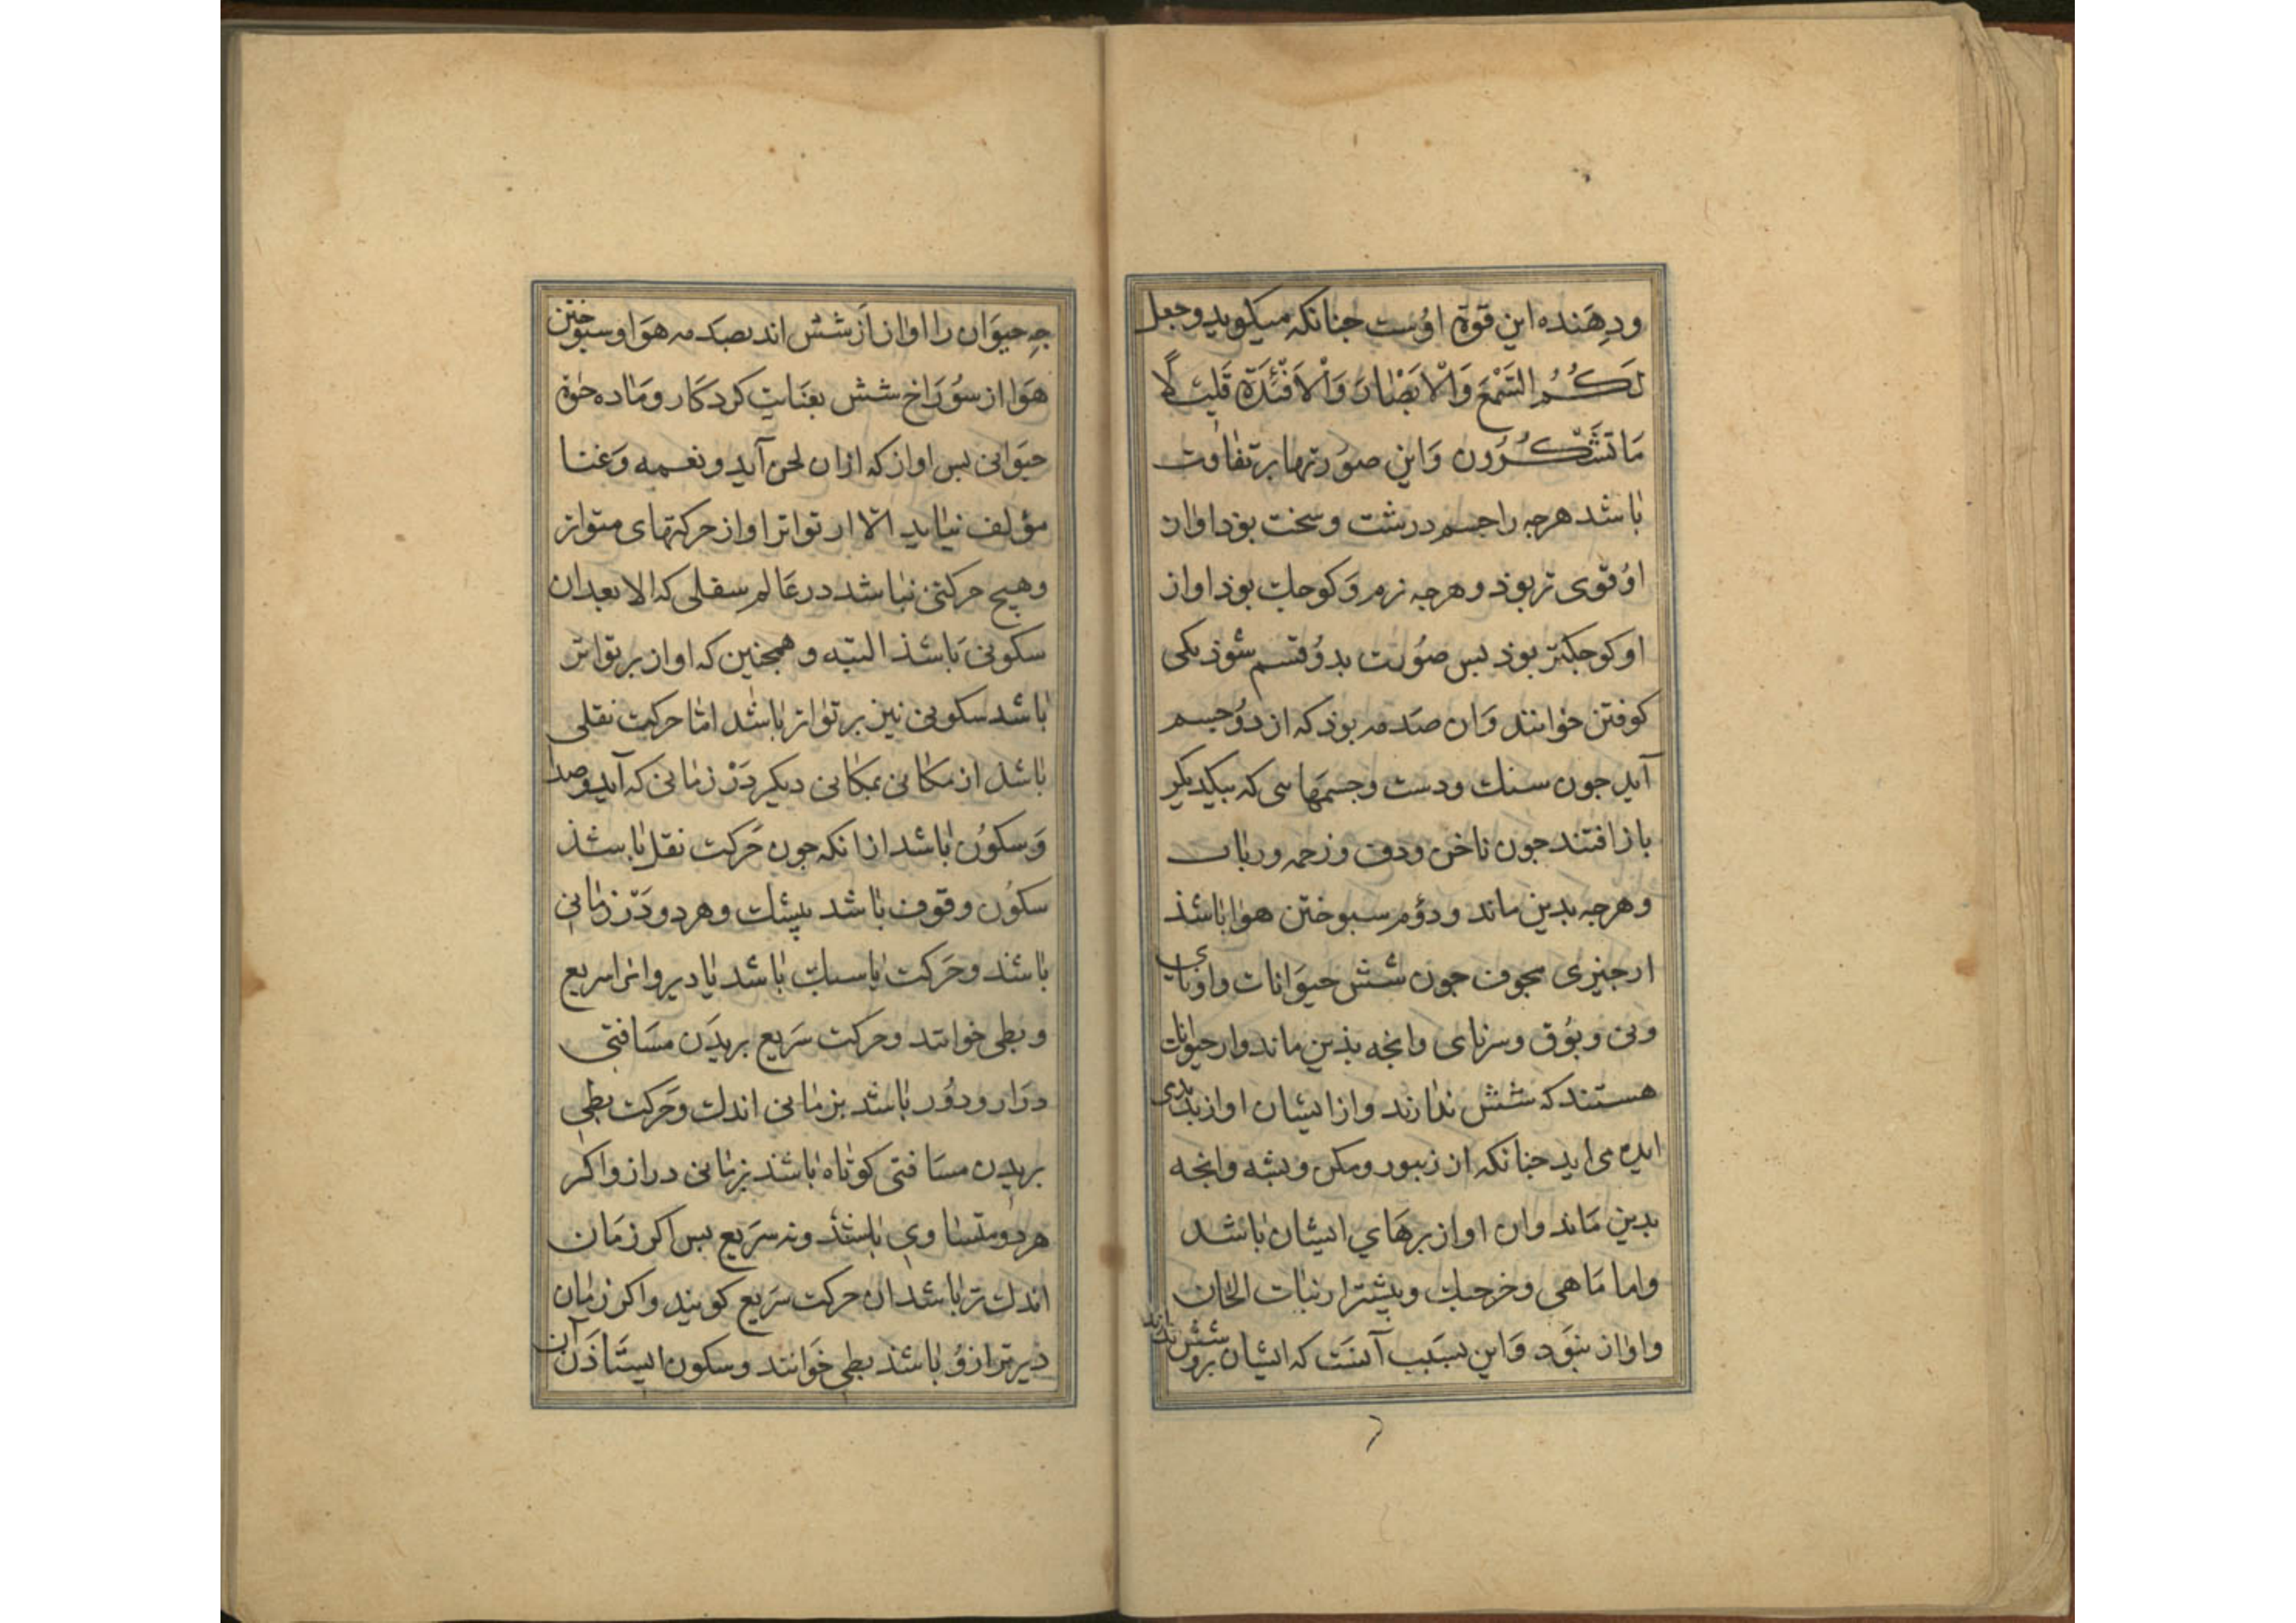 ودهنده این قوة اوست جنانکه میکوید وجعل
لَكُمُ السَّمْعَ وَالْاَبْصَارَ وَالْاَفْئِدَةَ قَلِيلًا
مَا تَشْكُرُونَ وَاین صورتها بر تفاوت
باشد هرجه را جسم درشت وسخت بوذ اواز
او قوی تر بوذ وهرجه نرم وکوجك بوذ اواز
او کوجکتر بوذ بس صورت بدو قسم شوذ یکی
کوفتن خوانند وان صدمه بوذ که از دو جسم
آید جون سنك ودست وجسمهاسی که بیکدیکر
بازافتند جون ناخن ودف وزخمه ورباب
وهرجه بدین ماند ودوم سبوختن هوا باشذ
ازجیزی مجوف جون شش حیوانات واونای
ونی وبوق وسرنای وانجه بذین ماند واز حیوانات
هستند که شش ندارند وازایشان اواز بدید
می اید جنانکه از زنبور ومکس وبشه وانجه
بدین ماند وان اواز برهای ایشان باشد
واما ماهی وخرجنك وبیشتر از نبات الحان
واواز نبوَد وَاین بسَبب آنست که ایشان شش ندارند
جه حیوان را اواز از شش اند بصدمه هوا وسبوختن
هوا از سوراخ شش بعنایت کردکار وماده حوة
حیوانی بس اواز که ازان لحن آید ونغمه وغنا
مؤلف نیاید الا از تواتر اواز حرکتهای متواتر
وهیچ حرکتی نباشد در عالم سفلی که الا بعدان
سکونی باشذ البته وهمجنین که اواز بر تواتر
باشد سکونی نیز بر تواتر باشد اما حرکت نقلی
باشذ از مکانی بمکانی دیکر دَرْ زمانی که آید وصدا
وَسکون باشد ازانکه جون حَرکت نقل باشذ
سکون وقوف باشد بیشك وهردو دَرْ زمانی
باشند وحَرکت یا سبك باشد یا دیر وانرا سریع
وبطی خوانند وحرکت سَریع بریدَن مسَافتی
دراز ودور باشد بزمانی اندك وحَرکت بطی
بریدن مسَافتی کوتاه باشذ بزمانی دراز واکر
هردو متساوی باشذ ونه سَریع بس اکر زمَان
اندك تر باشد ان حرکت سَریع کویند واکر زمان
دیرتر ازو باشذ بطی خَوانند وسکون ایستاذَن آن